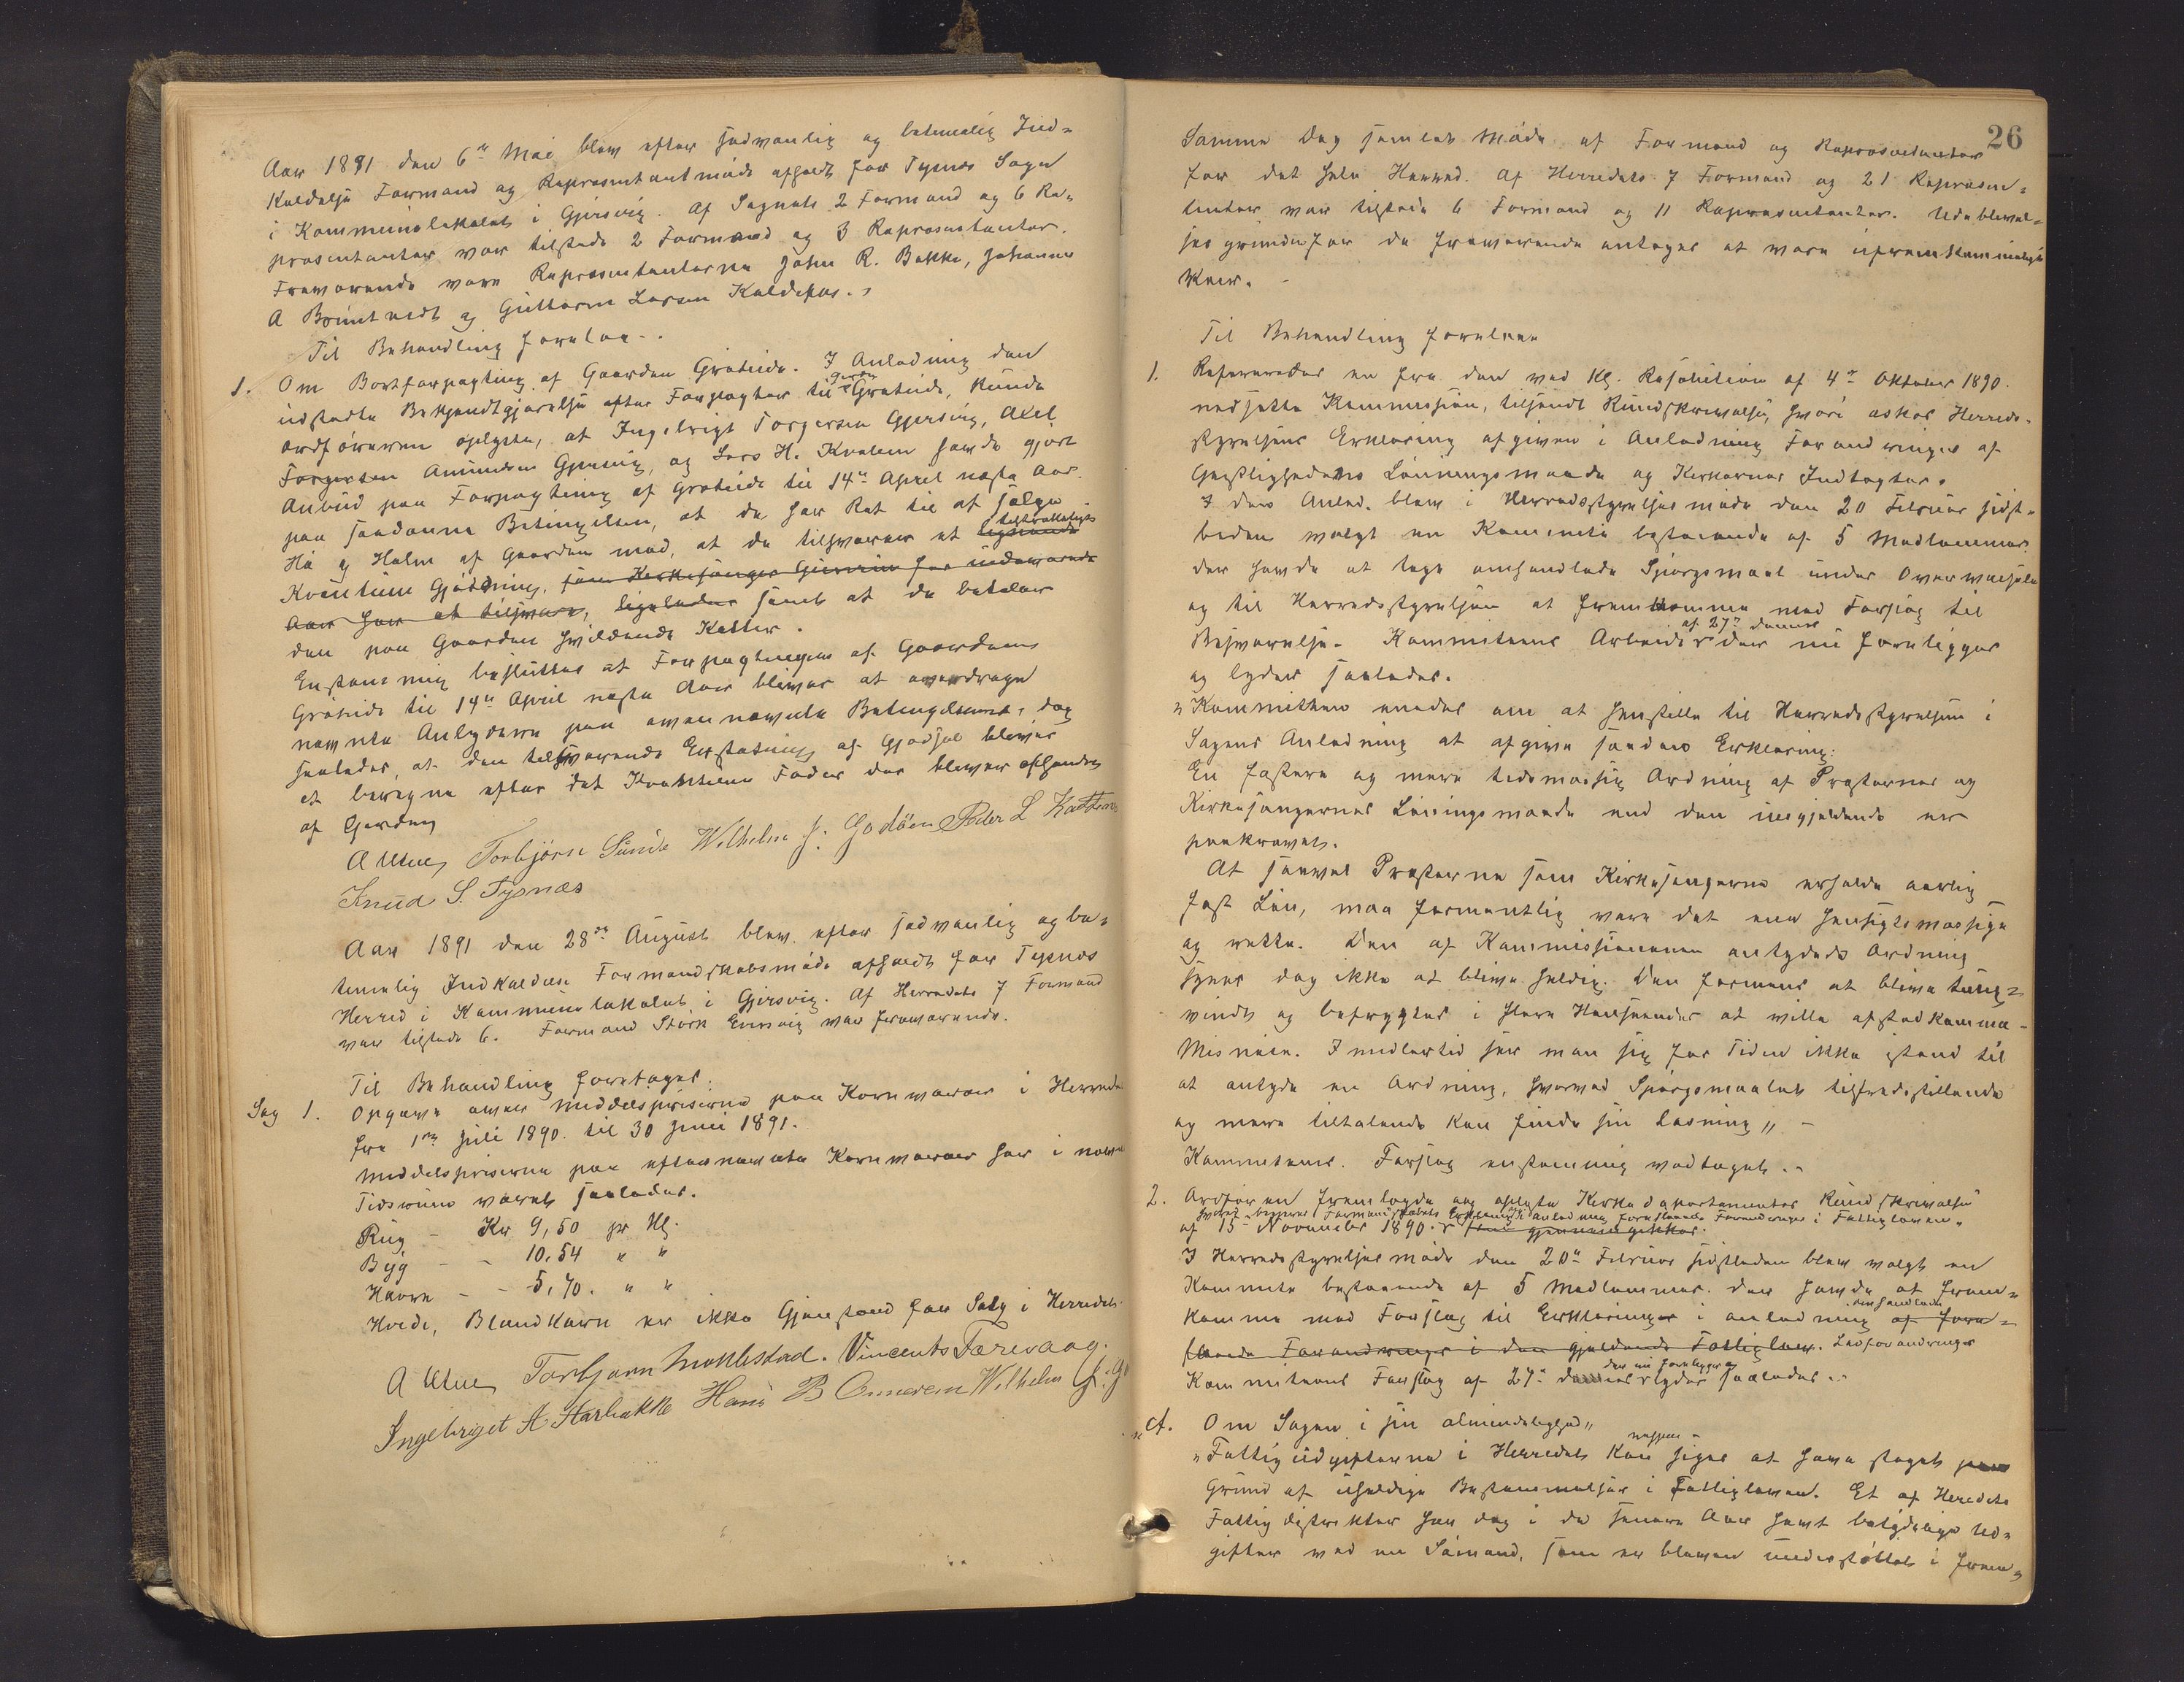 Aar 1891 den 6te Mai blev efter sedvanlig og betimelig Ind-
kaldelse Formand og Repræsentantmøde afholdt for Tysnes Sogn
i Kommunelokalet i Gjersvig. Af Sognets 2 Formænd og 6 Re-
præsentanter var tilstede 2 Formænd og 3 Repræsentanter.
Fraværende vare Repræsentanterne John R. Bakke, Johannes
A Brüntvedt og Guttorm Larsen Kaldefos.
Til Behandling forelaa.
1. Om Bortforpagtning af Gaarden Grøteide. I Anledning den
udstedte Bekjendtgjørelse efter Forpagter til Gaarden Grøteide, kunde
Ordføreren oplyste, at Ingebrigt Torgersen Gjersvig, Axel
Torgersen Amundsen Gjersvig, og Lars H. Kvalem havde gjort
Anbud paa Forpagtning af Grøteide til 14de April næste Aar
paa saadanne Betingelser, at de har Ret til at sælge
Hø og Halm af Gaarden mod, at de tilsvarer et lignende tilstrækkeligt
Kvantum Gjødning, som Kirkesanger for indeværende
Aar har at tilsvare, ligeledes samt at de betaler
den paa Gaarden hvilende Skatter.
Enstemmig besluttes at Forpagtningen af Gaarden
Grøteide til 14de April næste Aar bliver at overdrage
nævnte Anbydere paa ovennævnte Betingelser, dog
saaledes, at den tilsvarende Erstatning af Gjødsel bliver
at beregne efter det Kvantum Foder der bliver afhændet
af Gaarden
A Uthue Torbjørn Sunde Wilhelm J. Godøen Peder L Kattem
Knud S. Tysnæs
Aar 1891 den 28de August blev efter sedvanlig og be-
timelig Indkaldelse Formandskabsmøde afholdt for Tysnes
Herred i Kommunelokalet i Gjersvig. Af Herredets 7 Formænd
var tilstede 6. Formand Størk Ennevig var fraværende.
Til Behandling foretoges.
Sag 1. Opgave over Middelspriserne paa Kornvarer i Herredet
fra 1ste Juli 1890 til 30 Juni 1891.
Middelspriserne paa efternævnte Kornvarer har i nævnte
Tidsrum været saaledes.
Rug - Kr 9,50 pr Hl.
Byg - - 10,54 " "
Havre - - 5,70. " "
Hvede, Blandkorn er ikke Gjenstand for Salg i Herredet.
A Uthue Torbjørn Mokkestad. Vincents Færevaag.
Ingebrigt A Harbakke Hans B Wilhelm J. G
26
Samme Dag samlet Møde af Formænd og Repræsentanter
for det hele Herred. Af Herredets 7 Formænd og 21 Repræsen-
tanter var tilstede 6 Formænd og 11 Repræsentanter. Udeblivel-
sesgrunde for de fraværende antoges at være ufremkommelige
Veier.
Til Behandling forelaa
1. Refereredes en fra den ved Kgl. Resolution af 4de Oktober 1890.
nedsatte Kommission, tilsendt Rundskrivelse, hvori æskes Herreds-
styrelsens Erklæring afgiven i Anledning Forandringer af
Geistlighedens Lønningsmaade og Kirkernes Indtægter.
I den Anled. blev i Herredsstyrelsesmøde den 20 Februar sidst-
leden valgt en Kommite bestaaende af 5 Medlemmer
der havde at tage omhandlede Spørgsmaal under Overveielse
og til Herredsstyrelsen at fremkomme med Forslag til
Besvarelse. Kommiteens Arbeide af 27de dennes der nu foreligger
og lyder saaledes.
"Kommiteen enedes om at henstille til Herredsstyrelsen i
Sagens Anledning at afgive saadan Erklæring:
En fastere og mere tidsmæssig Ordning af Præsternes og
Kirkesangernes Lønningsmaade end den nugjældende er
paakrævet.
At saavel Præsterne som Kirkesangerne erholde aarlig
fast Løn, maa formentlig være det ene hensigtsmæssige
og rette. Den af Kommissionen antydede Ordning
synes dog ikke at blive heldig. Den formenes at blive tung-
vindt og befrygtes i flere Henseender at ville afstedkomme
Misnøie. Imidlertid ser man sig for Tiden ikke istand til
at antyde en Ordning, hvorved Spørgsmaalet tilfredsstillende
og mere tiltalende kan finde sin Løsning" -
Kommiteens Forslag enstemmig vedtaget.
2. Ordføreren fremlagde og oplyste Kirkedepartementets Rundskrivelse
Formandskabets Erklæring i Anledning Foreslaaede Forandringer i Fattigloven.
af 15de November 1890. som gjennemgikkes.
I Herredsstyrelsesmøde den 20de Februar sidstleden blev valgt en
Kommite bestaaende af 5 Medlemmer der havde at frem-
komme med Forslag til Erklæringer i Anledning omhandlede af fore-
slaaede Forandringer i den gjældende Fattiglov. Lovforandringer
Kommiteens Forslag af 27de dennes der nu foreligger og lyder saaledes.
"A. Om Sagen i sin Almindelighed"
"Fattigudgifterne i Herredet kan neppe siges at have steget paa
Grund af uheldige Bestemmelser i Fattigloven. Et af Herredets
Fattigdistrikter har dog i de senere Aar havt betydelige Ud-
gifter ved en Sømand, som er bleven understøttet i frem-